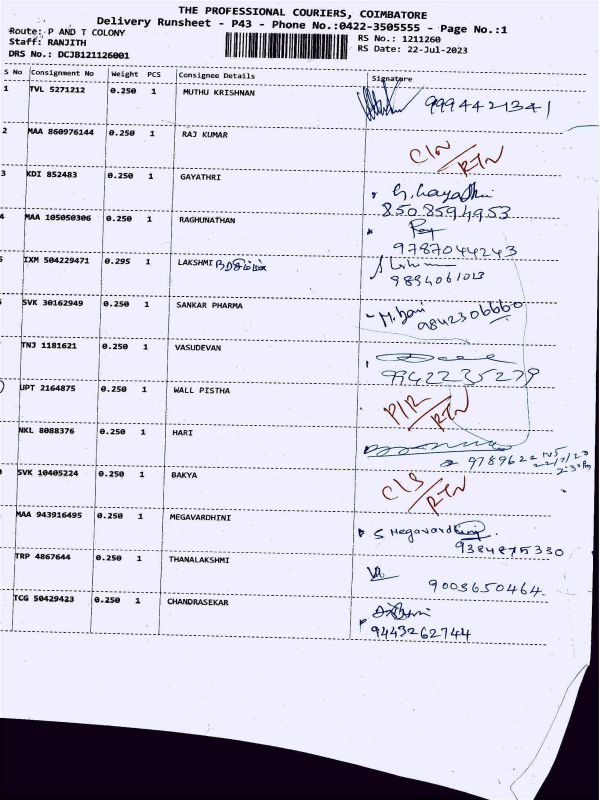 THE PROFESSIONAL COURIERS, COIMBATORE
Delivery Runsheet - P43 - Phone No.:0422-3505555 - Page No.:1
Route: P AND T COLONY
RS No.: 1211260
Staff: RANJITH
RS Date: 22-Jul-2023
DRS No.: DCJB121126001
S No Consignment No Weight PCS Consignee Details Signature
1 TVL 5271212 0.250 1 MUTHU KRISHNAN 9994421341
2 MAA 860976144 0.250 1 RAJ KUMAR C/N/RTN
3 KDI 852483 0.250 1 GAYATHRI G. Gayathri
8508594953
4 MAA 105050306 0.250 1 RAGHUNATHAN
9787044243
5 IXM 504229471 0.295 1 LAKSHMI
9894061023
SVK 30162949 0.250 1 SANKAR PHARMA 9842306660
TNJ 1181621 0.250 1 VASUDEVAN
9942235279
UPT 2164875 0.250 1 WALL PISTHA RTN
NKL 8088376 0.250 1 HARI
9789622
SVK 10405224 0.250 1 BAKYA RTN
MAA 943916495 0.250 1 MEGAVARDHINI S Megavardhini
9384875330
TRP 4867644 0.250 1 THANALAKSHMI
9003650464
TCG 50429423 0.250 1 CHANDRASEKAR
9443262744